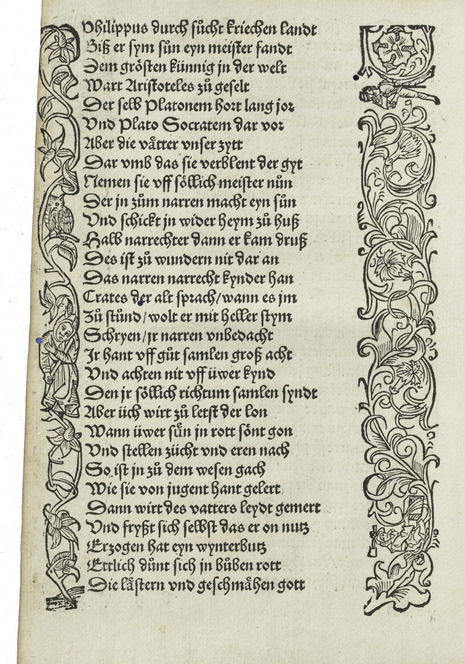 Philippus durch sůcht kriechen landt
Biß er sym sůn eyn meister fandt
Dem grösten künnig jn der welt
Wart Aristoteles zů geselt
Der selb Platonem hort lang jor
Vnd Plato Socratem dar vor
Aber die vätter vnser zytt
Dar vmb das sie verblent der gyt
Nemen sie vff söllich meister nůn
Der jn zům narren macht eyn sůn
Vnd schickt jn wider heym zů huß
Halb narrechter dann er kam druß
Des ist zů wundern nit dar an
Das narren narrecht kynder han
Crates der alt sprach/wann es jm
Zů stůnd/wolt er mit heller stym
Schryen/jr narren vnbedacht
Ir hant vff gůt samlen groß acht
Vnd achten nit vff üwer kynd
Den jr söllich richtum samlen syndt
Aber üch wirt zů letst der lon
Wann üwer sůn jn rott sönt gon
Vnd stellen zücht vnd eren nach
So ist jn zů dem wesen gach
Wie sie von jugent hant gelert
Dann wirt des vatters leydt gemert
Vnd fryßt sich selbst das er on nutz
Erzogen hat eyn wynterbutz
Ettlich důnt sich jn bůben rott
Die lästern vnd geschmähen gott